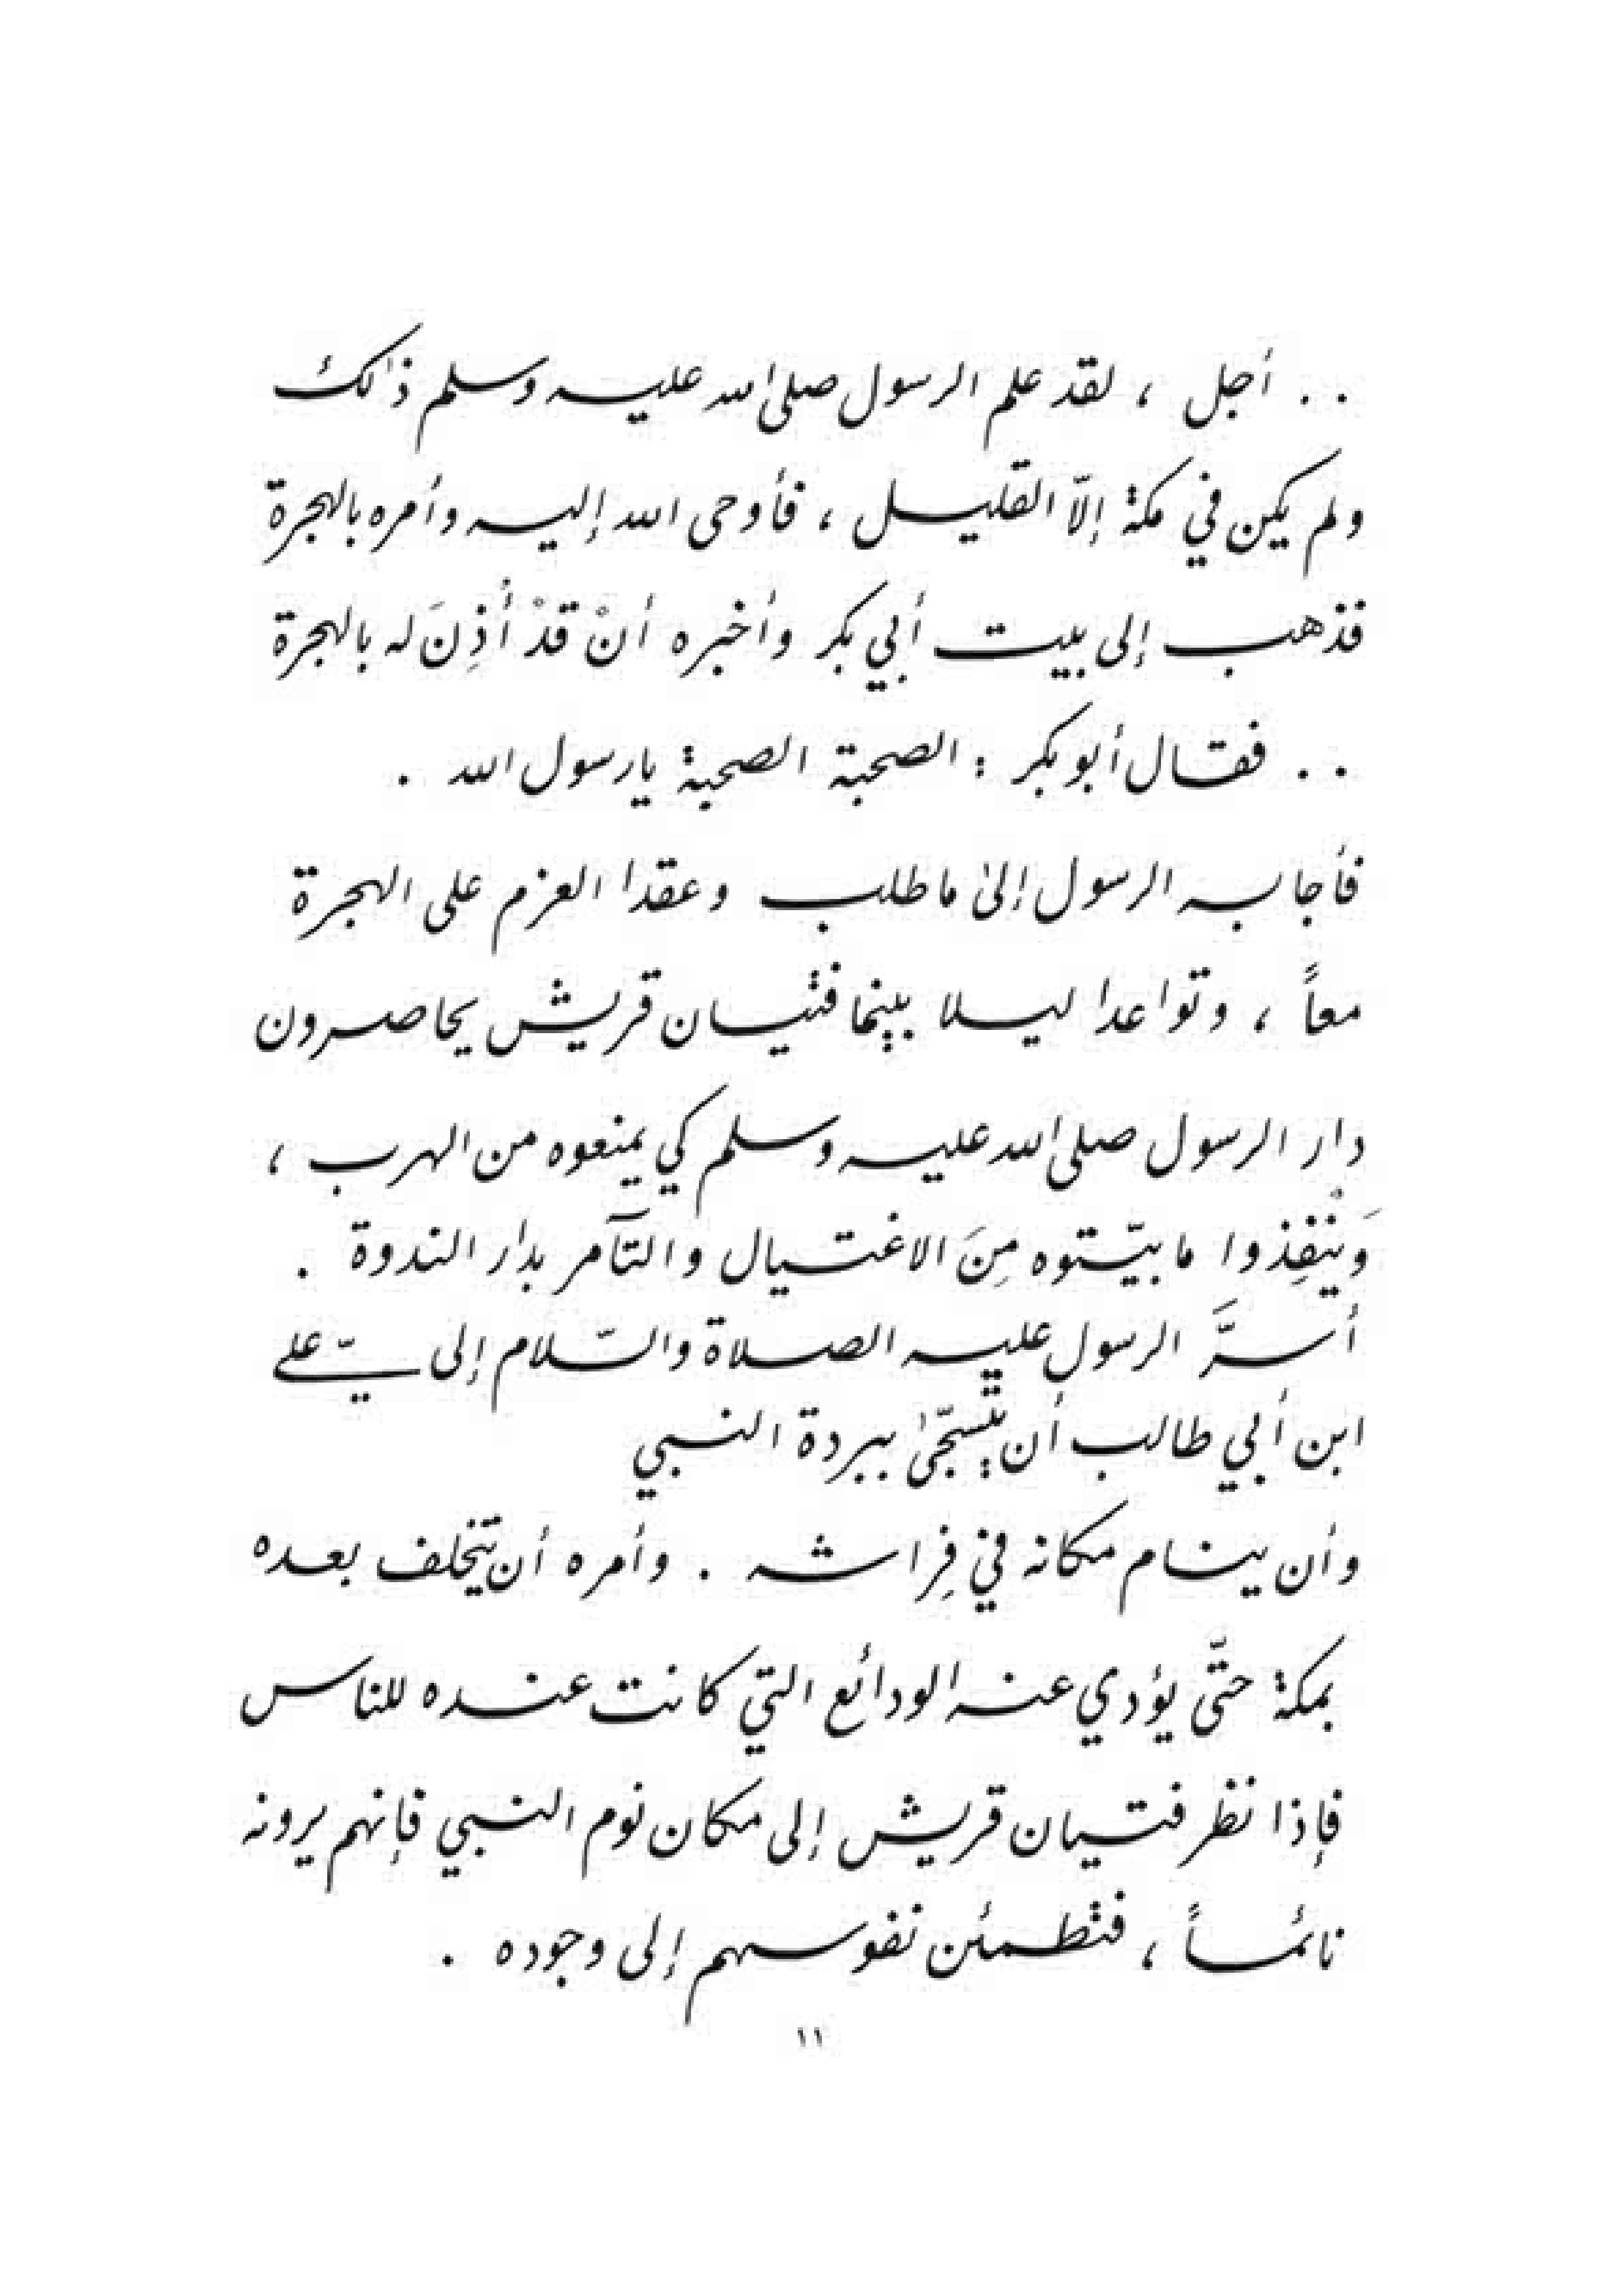 .. أجل ، لقد علم الرسول صلى الله عليه وسلم ذٰلك
ولم يكن في مكة إلّا القليل ، فأوحى الله إليه وأمره بالهجرة
فذهب إلى بيت أبي بكر وأخبره أنْ قدْ أُذِنَ له بالهجرة
.. فقال أبو بكر : الصحبة الصحبة يا رسول الله .
فأجابه الرسول إلىٰ ما طلب وعقدا العزم على الهجرة
معاً ، وتواعدا ليلا بينما فتيان قريش يحاصرون
دار الرسول صلى الله عليه وسلم كي يمنعوه من الهرب ،
وَيْنْفِذوا ما بيّتوه مِنَ الاغتيال والتآمر بدار الندوة .
أسرَّ الرسول عليه الصلاة والسّلام إلى عليّ
ابن أبي طالب أن يتسجّىٰ ببردة النبي
وأن ينام مكانه في فِراشه . وأمره أن يتخلف بعده
بمكة حتّى يؤدي عنه الودائع التي كانت عنده للناس
فإذا نظر فتيان قريش إلى مكان نوم النبي فإنهم يرونه
نائماً ، فتطمئن نفوسهم إلى وجوده .
١١